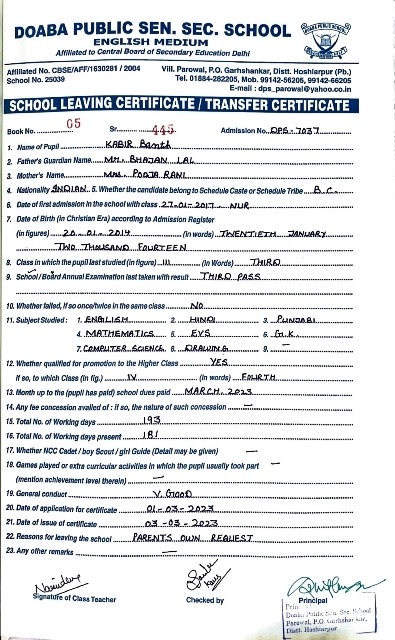 DOABA PUBLIC SEN. SEC. SCHOOL
ENGLISH MEDIUM
Affiliated to Central Board of Secondary Education Delhi
Affiliated No. CBSE/AFF/1630281 / 2004
School No. 25039
Vill. Parowal, P.O. Garhshankar, Distt. Hoshiarpur (Pb.)
Tel. 01884-282205, Mob. 99142-56205, 99142-66205
E-mail : dps_parowal@yahoo.co.in
SCHOOL LEAVING CERTIFICATE / TRANSFER CERTIFICATE
Book No. 05 Sr. 445 Admission No. DPS-7037
1. Name of Pupil KABIR Banth
2. Father's Guardian Name MR. BHAJAN LAL
3. Mother's Name MRS. POOJA RANI
4. Nationality INDIAN 5. Whether the candidate belong to Schedule Caste or Schedule Tribe B.C.
6. Date of first admission in the school with class 27-01-2017 NUR
7. Date of Birth (in Christian Era) according to Admission Register
(in figures) 20-01-2014 (in words) TWENTIETH JANUARY
TWO THOUSAND FOURTEEN
8. Class in which the pupil last studied (in figure) III (in Words) THIRD
9. School / Board Annual Examination last taken with result THIRD PASS
10. Whether failed, if so once/twice in the same class NO
11. Subject Studied : 1. ENGLISH 2. HINDI 3. PUNJABI
4. MATHEMATICS 5. EVS 6. G.K.
7. COMPUTER SCIENCE 8. DRAWING 9. —
12. Whether qualified for promotion to the Higher Class YES
if so, to which Class (in fig.) IV (in words) FOURTH
13. Month up to the (pupil has paid) school dues paid MARCH, 2023
14. Any fee concession availed of : if so, the nature of such concession —
15. Total No. of Working days 193
16. Total No. of Working days present 181
17. Whether NCC Cadet / boy Scout / girl Guide (Detail may be given) —
18. Games played or extra curricular activities in which the pupil usually took part —
(mention achievement level therein) —
19. General conduct V. GOOD
20. Date of application for certificate 01-03-2023
21. Date of issue of certificate 03-03-2023
22. Reasons for leaving the school PARENTS OWN REQUEST
23. Any other remarks —
Signature of Class Teacher Checked by Principal
Doaba Public Sen. Sec. School
Parowal, P.O. Garhshankar,
Distt. Hoshiarpur